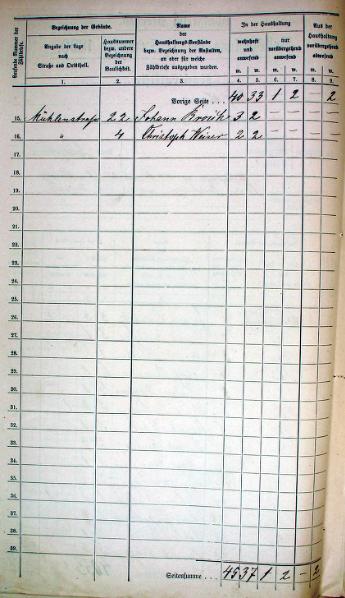 Laufende Nummer der Zählbriefe.
Bezeichnung der Gebäude.
Angabe der Lage
nach
Straße und Ortstheil.
Hausnummer
bezw. andere
Bezeichnung
der
Baulichkeit.
Name
der
Haushaltungs-Vorstände
bezw. Bezeichnung der Anstalten,
an oder für welche
Zählbriefe ausgegeben wurden.
In der Haushaltung
wohnhaft
und
anwesend
nur
vorübergehend
anwesend
Aus der
Haushaltung
vorübergehend
abwesend
m. w. m. w. m. w.
1. 2. 3. 4. 5. 6. 7. 8. 9.
Vorige Seite . . . 40 33 1 2 2
15. Mühlenstraße 22 Johann 3 2 — —
16. " 4 Christoph Weiser 2 2 — —
17.
18.
19.
20.
21.
22.
23.
24.
25.
26.
27.
28.
29.
30.
31.
32.
33.
34.
35.
36.
37.
38.
39.
Seitensumme . . . 45 37 1 2 — 2